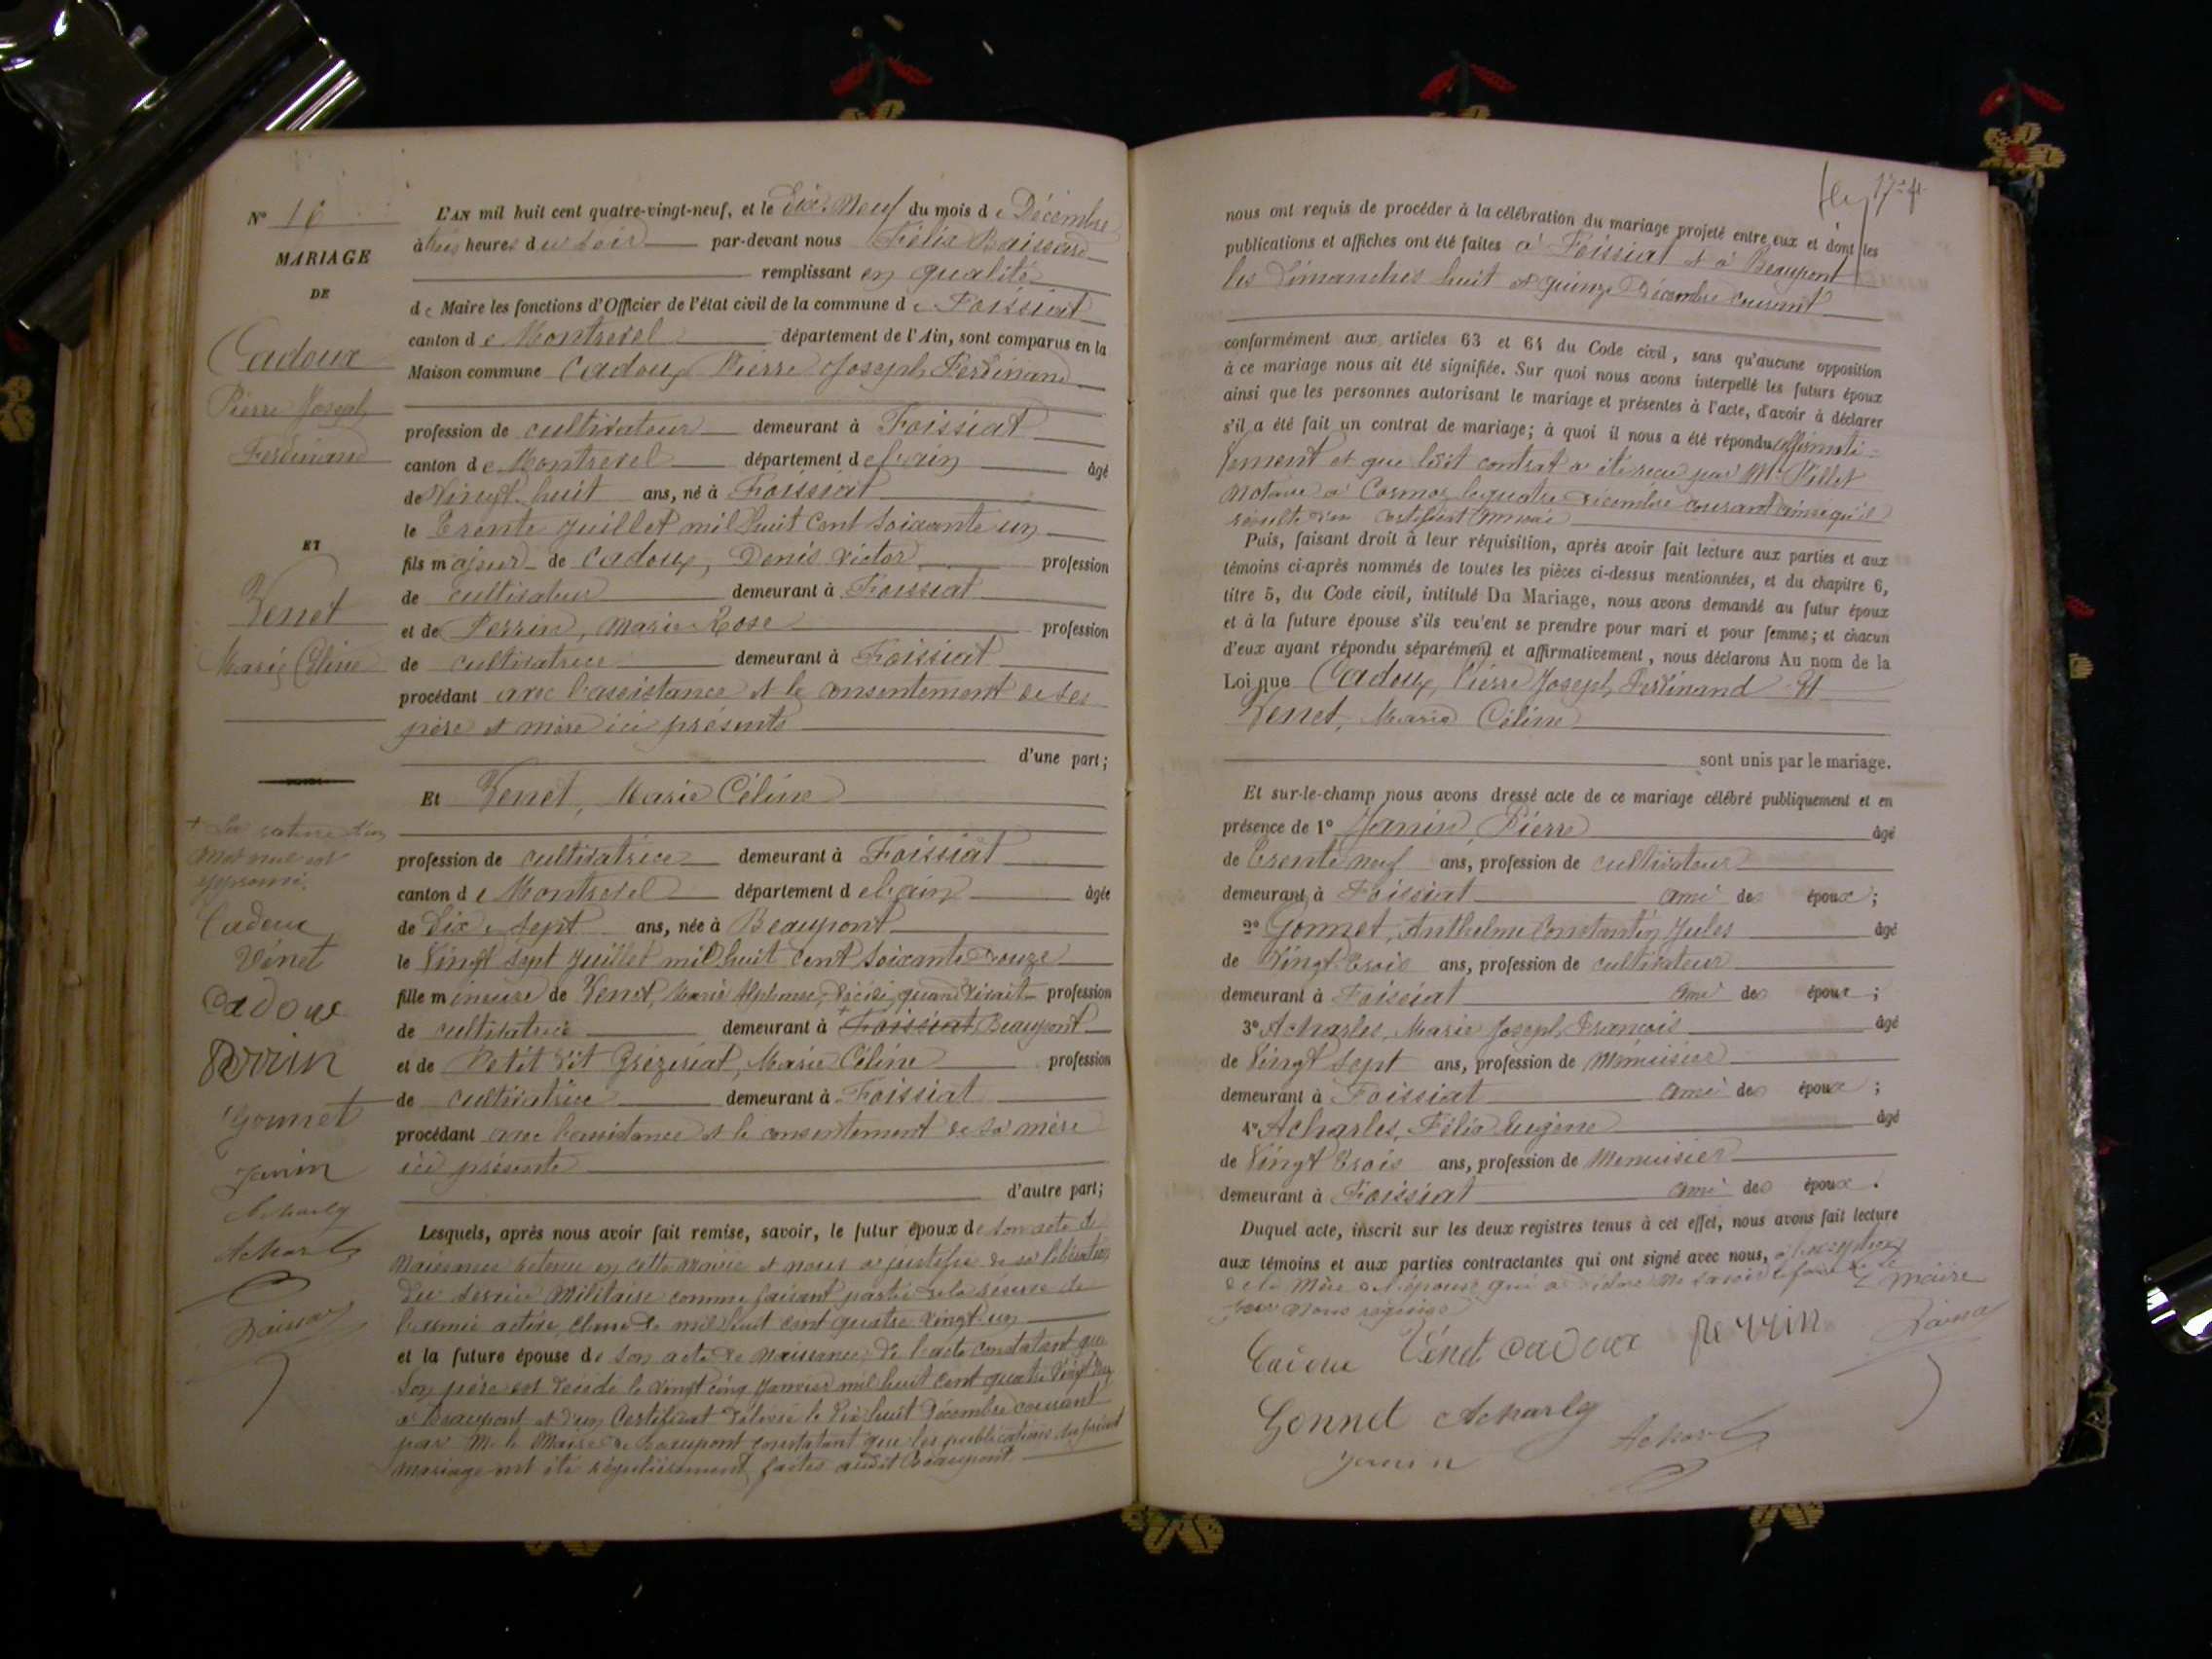 N° 16
MARIAGE
DE
Cadoux
Pierre Joseph
Ferdinand
ET
Venet
Marie Céline
+ La rature d'un
mot nul est
approuvé.
Cadoux
Vénet
Cadoux
Perrin
Gonnet
Janin
Acharles
Acharles
L'AN mil huit cent quatre-vingt-neuf, et le dix-neuf du mois de Décembre
à trois heures du soir par-devant nous Félix
remplissant en qualité
de Maire les fonctions d'Officier de l'état civil de la commune de Foissiat
canton de Montrevel département de l'Ain, sont comparus en la
Maison commune Cadoux, Pierre Joseph Ferdinand
profession de cultivateur demeurant à Foissiat
canton de Montrevel département de l'ain âgé
de vingt-huit ans, né à Foissiat
le trente juillet mil huit cent soixante un
fils majeur de Cadoux, Denis Victor profession
de cultivateur demeurant à Foissiat
et de Perrin, Marie Rose profession
de cultivatrice demeurant à Foissiat
procédant avec l'assistance et le consentement de ses
père et mère ici présents
d'une part;
Et Venet, Marie Céline
profession de cultivatrice demeurant à Foissiat
canton de Montrevel département de l'ain âgée
de dix-sept ans, née à Beaupont
le vingt sept juillet mil huit cent soixante douze
fille mineure de Venet, Marie Alphonse, décédé, quand vivait profession
de cultivatrice demeurant à + Foissiat Beaupont
et de Petit dit Grézériat, Marie Céline profession
de cultivatrice demeurant à Foissiat
procédant avec l'assistance et le consentement de sa mère
ici présente
d'autre part;
Lesquels, après nous avoir fait remise, savoir, le futur époux de son acte de
naissance retenu en cette mairie et nous a justifié de sa libération
du service militaire comme faisant partie de la réserve de
l'armée active, classe de mil huit cent quatre vingt un
et la future épouse de son acte de naissance, de l'acte constatant que
son père est décédé le vingt cinq Janvier mil huit cent quatre vingt
à Beaupont et d'un certificat délivré le dix huit Décembre courant
par M. le Maire de Beaupont constatant que les publications du présent
mariage ont été régulièrement faites audit Beaupont
nous ont requis de procéder à la célébration du mariage projeté entre eux et dont les
publications et affiches ont été faites à Foissiat et à Beaupont
les Dimanches huit et quinze Décembre courant
conformément aux articles 63 et 64 du Code civil, sans qu'aucune opposition
à ce mariage nous ait été signifiée. Sur quoi nous avons interpellé les futurs époux
ainsi que les personnes autorisant le mariage et présentes à l'acte, d'avoir à déclarer
s'il a été fait un contrat de mariage; à quoi il nous a été répondu affirmati=
vement et que ledit contrat a été reçu par Me Pillet
notaire à Cormoz le quatre décembre courant ainsi qu'il
résulte d'un certificat annexé
Puis, faisant droit à leur réquisition, après avoir fait lecture aux parties et aux
témoins ci-après nommés de toutes les pièces ci-dessus mentionnées, et du chapitre 6,
titre 5, du Code civil, intitulé Du Mariage, nous avons demandé au futur époux
et à la future épouse s'ils veu'ent se prendre pour mari et pour femme; et chacun
d'eux ayant répondu séparément et affirmativement, nous déclarons Au nom de la
Loi que Cadoux, Pierre Joseph Ferdinand Et
Venet, Marie Céline
sont unis par le mariage.
Et sur-le-champ nous avons dressé acte de ce mariage célébré publiquement et en
présence de 1° Janin, Pierre âgé
de trente neuf ans, profession de cultivateur
demeurant à Foissiat ami des époux;
2° Gonnet, Anthelme Constantin Jules âgé
de vingt trois ans, profession de cultivateur
demeurant à Foissiat ami des époux;
3° Acharles, Marie Joseph François âgé
de vingt sept ans, profession de menuisier
demeurant à Foissiat ami des époux;
4° Acharles, Félix Eugène âgé
de vingt trois ans, profession de menuisier
demeurant à Foissiat ami des époux.
Duquel acte, inscrit sur les deux registres tenus à cet effet, nous avons fait lecture
aux témoins et aux parties contractantes qui ont signé avec nous, à l'exception
de la mère de l'épouse qui a déclaré ne savoir le faire de ce
par nous requise
Le maire
Cadoux Vénet Cadoux Perrin
Gonnet Acharles
Janin Acharles